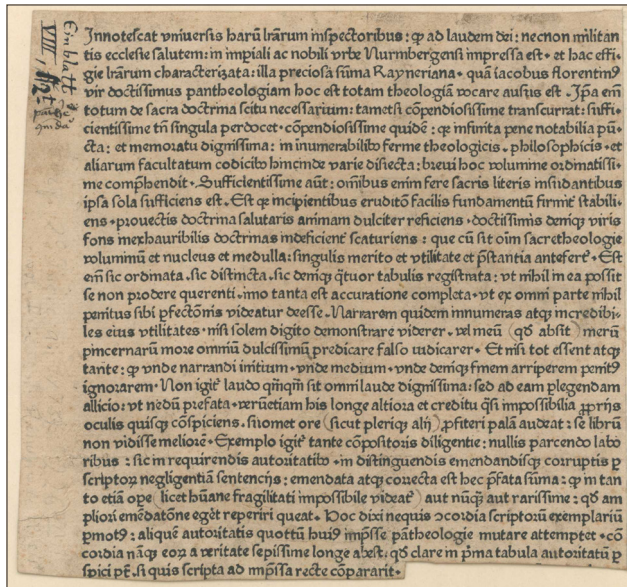 Einblatt
VIII,
Jnnotescat vniuersis harū lrārum inspectoribus: ꝙ ad laudem dei: necnon militan
tis ecclesie salutem: in imꝑiali ac nobili vrbe Nurmbergensi impressa est· et hac effi⸗
gie lrārum characterizata: illa preciosa sūma Rayneriana· quā iacobus florentinꝰ
vir doctissimus pantheologiam hoc est totam theologiā vocare ausus est· Jpā em̄
totum de sacra doctrina scitu necessarium: tametsi cōpendiosissime transcurrat: suffi⸗
cientissime tn̄ singula perdocet· cōpendiosissime quidē: qꝛ infinita pene notabilia pū⸗
cta: et memoratu dignissima: in inumerabilibꝰ ferme theologicis· philosophicis· et
aliarum facultatum codicibꝰ hincinde varie disiecta: breui hoc volumine ordinatissi⸗
me comp̄hendit· Sufficientissime aūt: omībus enim fere sacris literis insudantibus
ipsa sola sufficiens est· Est qꝛ incipientibus eruditōn facilis fundamentū firmit̄ stabili⸗
ens· prouectis doctrina salutaris animam dulciter reficiens· doctissimis deniqꝫ viris
fons inexhauribilis doctrinas indeficient̄ scaturiens: que cū sit oīm sacretheologie
voluminū et nucleus et medulla: singulis merito et vtilitate et p̄stantia antefert̄· Est
em̄ sic ordinata· sic distincta· sic deniqꝫ q̄tuor tabulis registrata: vt nihil in ea possit
se non prodere querenti· imo tanta est accuratione completa· vt ex omni parte nihil
penitus sibi ꝑfectōnis videatur deesse· Narrarem quidem innumeras atqꝫ incredibi⸗
les eius vtilitates· nisi solem digito demonstrare viderer· vel meū (qḋ absit) merū
pincernarū more omniū dulcissimū predicare falso iudicarer· Et nisi tot essent atqꝫ
tante: ꝙ vnde narrandi initium· vnde medium· vnde deniqꝫ finem arriperem penitꝰ
ignorarem· Non igit̄ laudo qm̄qm̄ sit omni laude dignissima: sed ad eam ꝑlegendam
allicio: vt nedū prefata· verūetiam his longe altiora et creditu q̄si impossibilia ꝓprijs
oculis quisqꝫ cōspiciens· suomet ore (sicut pleriqꝫ alij) ꝓfiteri palā audeat: se librū
non vidisse meliorē· Exemplo igit̄ tante cōpositoris diligentie: nullis parcendo labo
ribus: sic in requirendis autoritatibꝰ· in distinguendis emendandisqꝫ corruptis ꝑ
scriptoꝝ negligentiā sentencijs: emendata atqꝫ correcta est hec p̄fata sūma: ꝙ in tan⸗
to etiā ope (licet hūane fragilitati impossibile videat̄) aut nūqͣꝫ aut rarissime: qḋ am
pliori emēdatōne egēt reperiri queat· Hoc dixi nequis ꝯcordia scriptorū exemplariū
ꝑmotꝰ: aliquē autoritatis quottū huiꝰ imp̄sse pātheologie mutare attemptet· cō⸗
cordia nāqꝫ eoꝝ a veritate sepissime longe abest· qḋ clare in p̄ma tabula autoritatū ꝑ
spici pt̄· si quis scripta ad imp̄ssa recte cōpararit·